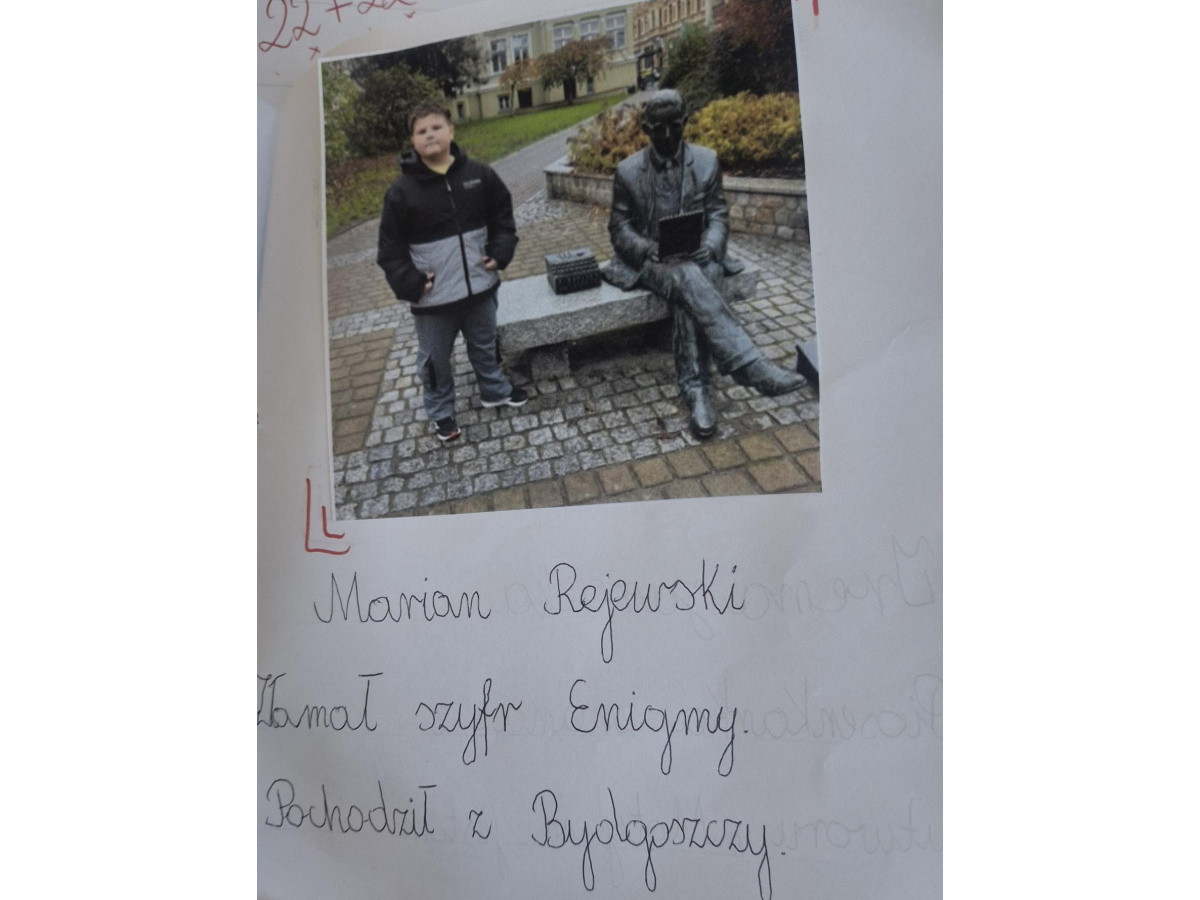 22+22
Marian Rejewski
Złamał szyfr Enigmy.
Pochodził z Bydgoszczy.